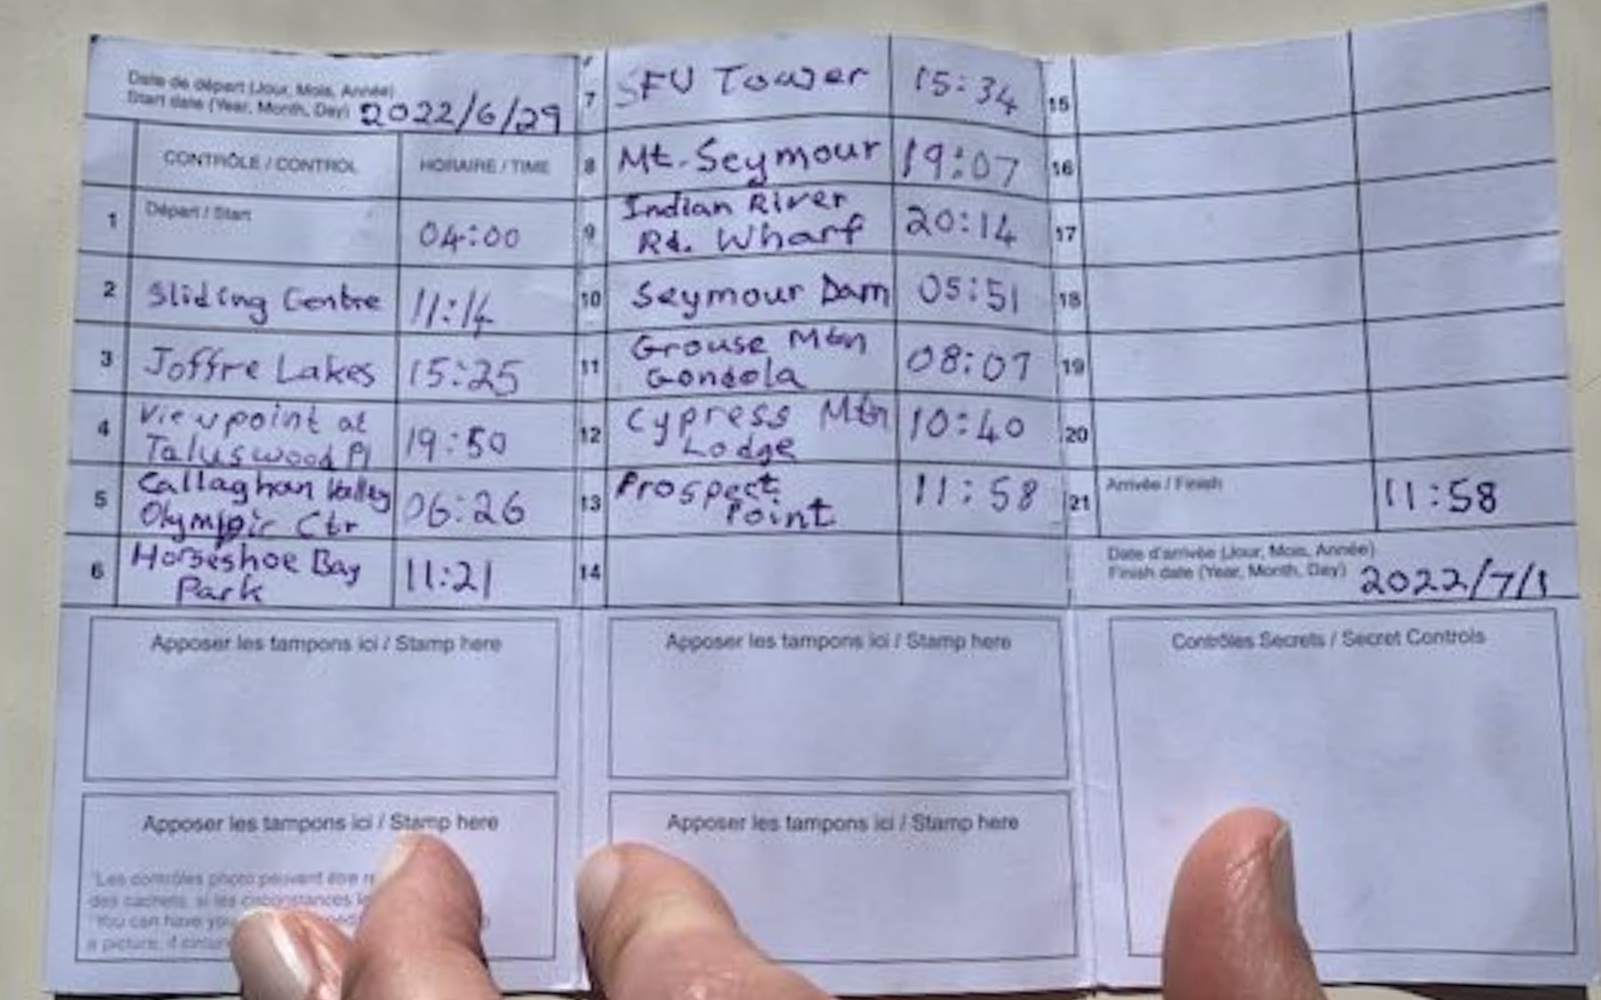 Date de départ (Jour, Mois, Année)
Start date (Year, Month, Day) 2022/6/29
CONTRÔLE / CONTROL HORAIRE / TIME
1 Départ / Start 04:00
2 Sliding Centre 11:14
3 Joffre Lakes 15:25
4 Viewpoint at
Taluswood Pl 19:50
5 Callaghan Valley
Olympic Ctr 06:26
6 Horseshoe Bay
Park 11:21
Apposer les tampons ici / Stamp here
Apposer les tampons ici / Stamp here
*Les contrôles photo peuvent être
des cachets, si les circonstances
*You can have
a picture, if
7 SFU Tower 15:34
8 Mt. Seymour 19:07
9 Indian River
Rd. Wharf 20:14
10 Seymour Dam 05:51
11 Grouse Mtn
Gondola 08:07
12 Cypress Mtn
Lodge 10:40
13 Prospect
Point 11:58
14
Apposer les tampons ici / Stamp here
Apposer les tampons ici / Stamp here
15
16
17
18
19
20
21 Arrivée / Finish 11:58
Date d'arrivée (Jour, Mois, Année)
Finish date (Year, Month, Day) 2022/7/1
Contrôles Secrets / Secret Controls